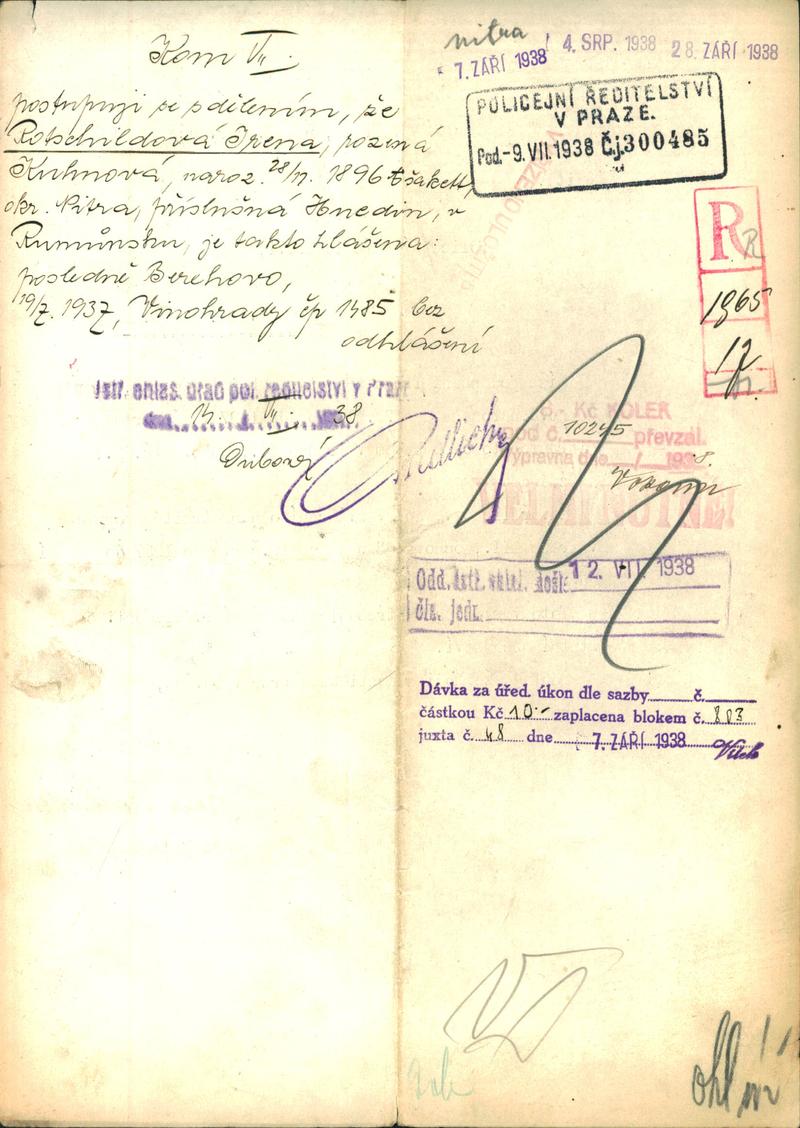 Kom VII.
postupuji se sdělením, že
Rotschildová Irena, rozená
Kuhnová, naroz. 28/ 1896 Čšakett,
okr. Nitra, příslušná Hnedin, v
Rumunsku, je takto hlášena:
posledně Berehovo,
19/7. 1937, Vinohrady čp 1485 bez
odhlášení
pol. ředitelství v Praze
14. VII. 38
nitra
7. ZÁŘÍ 1938
4. SRP. 1938
28. ZÁŘÍ 1938
POLICEJNÍ ŘEDITELSTVÍ
V PRAZE.
Pod.-9.VII.1938 Č.j.300485
R
R
1965
17
Kč KOLEK
POD č. 10245 převzal.
Výpravna dne / 1938.
VELMI NUTNÉ!
Odd. došlo 12. VII. 1938
čís. jedn.
Dávka za úřed. úkon dle sazby č.
částkou Kč 10.- zaplacena blokem č. 803
juxta č. 48 dne 7. ZÁŘÍ 1938